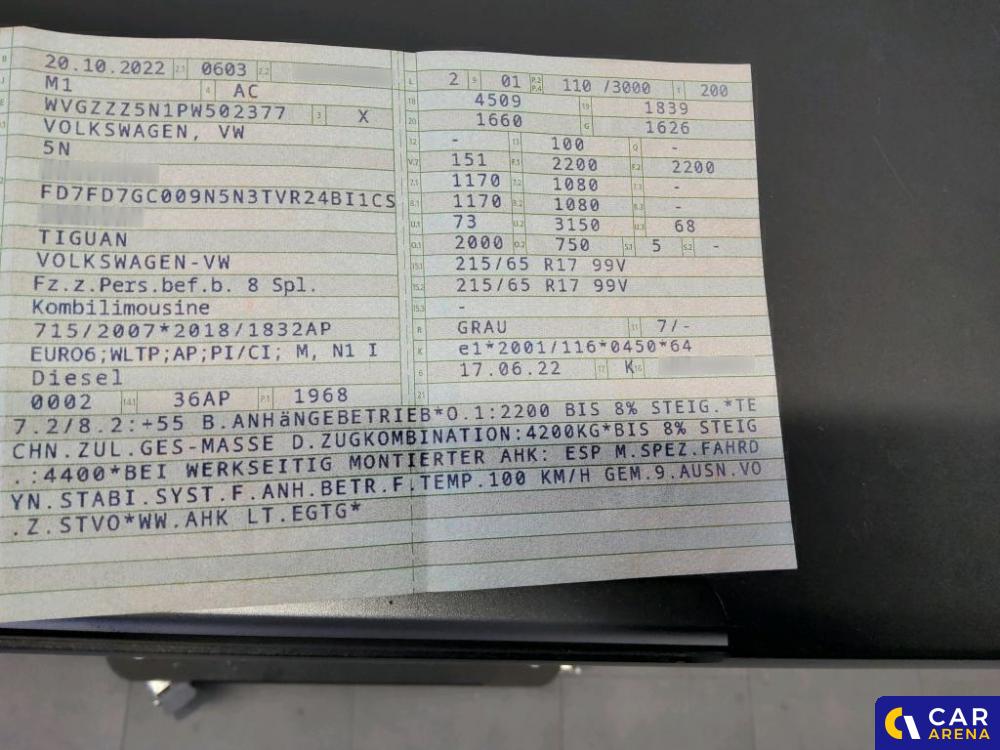 B 20.10.2022 2.1 0603 2.2
J M1 4 AC
E WVGZZZ5N1PW502377 3 X
VOLKSWAGEN, VW
5N
FD7FD7GC009N5N3TVR24BI1CS
TIGUAN
VOLKSWAGEN-VW
Fz.z.Pers.bef.b. 8 Spl.
Kombilimousine
715/2007*2018/1832AP
EURO6;WLTP;AP;PI/CI; M, N1 I
Diesel
0002 14.1 36AP P.1 1968
L 2 9 01 P.2 P.4 110 /3000 T 200
18 4509 19 1839
20 1660 G 1626
12 - 13 100 Q -
V.7 151 F.1 2200 F.2 2200
7.1 1170 7.2 1080 7.3 -
8.1 1170 8.2 1080 8.3 -
U.1 73 U.2 3150 U.3 68
O.1 2000 O.2 750 S.1 5 S.2 -
15.1 215/65 R17 99V
15.2 215/65 R17 99V
15.3 -
R GRAU 11 7/-
K e1*2001/116*0450*64
6 17.06.22 17 K 16
21
7.2/8.2:+55 B.ANHäNGEBETRIEB*O.1:2200 BIS 8% STEIG.*TE
CHN.ZUL.GES-MASSE D.ZUGKOMBINATION:4200KG*BIS 8% STEIG
.:4400*BEI WERKSEITIG MONTIERTER AHK: ESP M.SPEZ.FAHRD
YN.STABI.SYST.F.ANH.BETR.F.TEMP.100 KM/H GEM.9.AUSN.VO
.Z.STVO*WW.AHK LT.EGTG*
CAR
ARENA